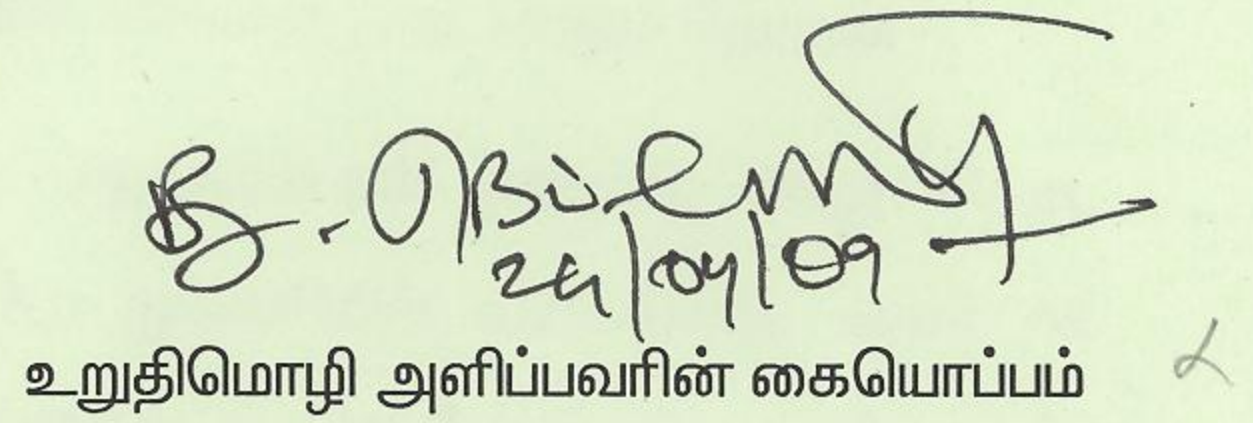 24/04/09
உறுதிமொழி அளிப்பவரின் கையொப்பம்